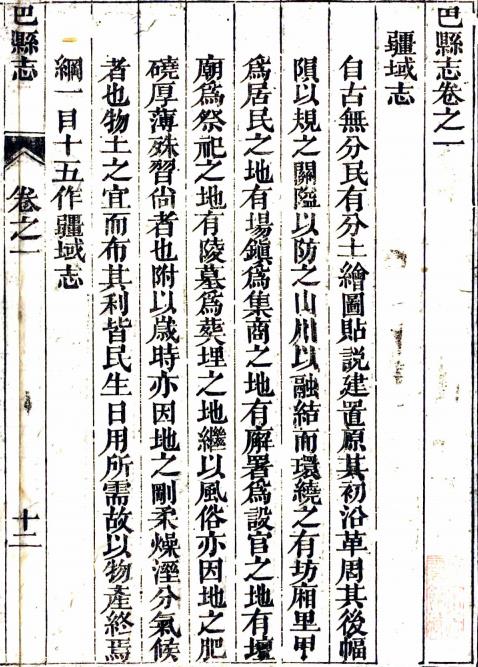 巴縣志卷之一
疆域志
自古無分民有分土繪圖貼說建置原其初沿革周其後幅
隕以規之關隘以防之山川以融結而環繞之有坊廂里甲
爲居民之地有場鎮爲集商之地有廨署爲設官之地有壇
廟爲祭祀之地有陵墓爲葬埋之地繼以風俗亦因地之肥
磽厚薄殊習尙者也附以歲時亦因地之剛柔燥溼分氣候
者也物土之宜而布其利皆民生日用所需故以物產終焉
綱一目十五作疆域志
巴縣志
卷之一
十二